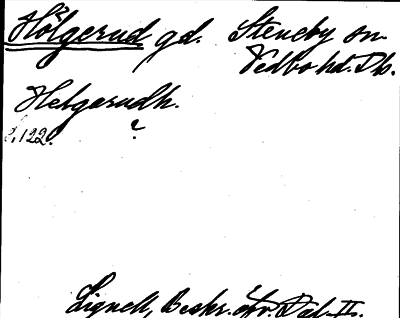 Hölgerud gd. Steneby sn.
Vedbo hd. Dls.
Helgarudh.
s. 122. ?
Lignell, Beskr. öfv. Dal. II.